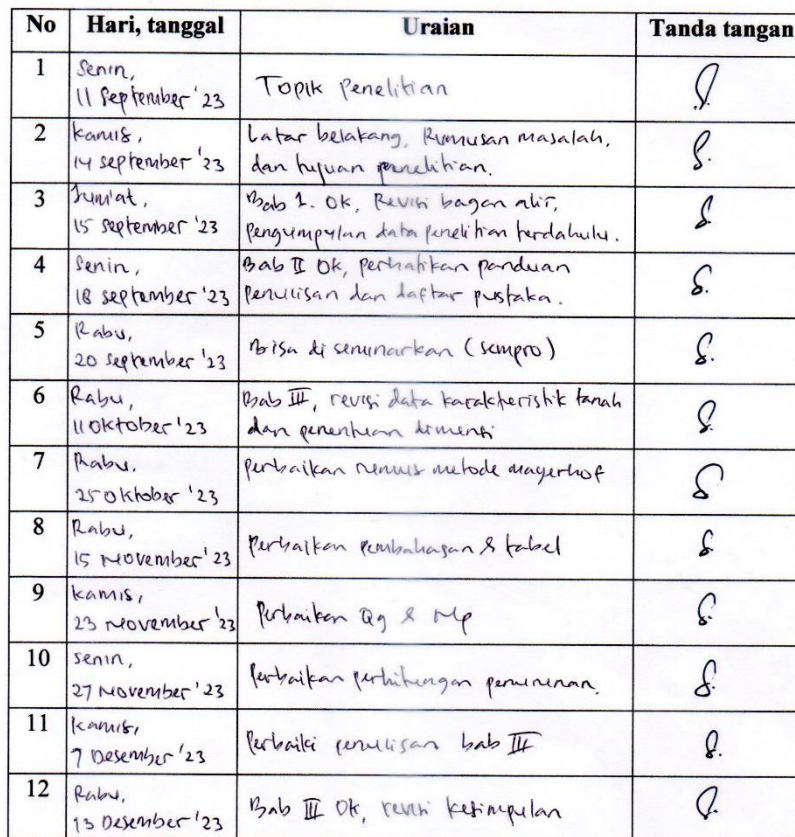 No Hari, tanggal Uraian Tanda tangan
1 Senin,
11 September '23 Topik penelitian
2 Kamis, Latar belakang, Rumusan masalah,
14 September '23 dan tujuan penelitian.
3 Jum'at, Bab 1. Ok, Revisi bagan alir,
15 September '23 pengumpulan data penelitian terdahulu.
4 Senin, Bab II Ok, perhatikan panduan
18 September '23 penulisan dan daftar pustaka.
5 Rabu,
20 September '23 Bisa di seminarkan (sempro)
6 Rabu, Bab III, revisi data karakteristik tanah
11 Oktober '23 dan penentuan dimensi
7 Rabu, perbaikan rumus metode mayerhof
25 Oktober '23
8 Rabu,
15 November '23 Perbaikan pembahasan & tabel
9 Kamis,
23 November '23 Perbaikan Qg &
10 Senin,
27 November '23 Perbaikan perhitungan penurunan.
11 Kamis,
7 Desember '23 Perbaiki penulisan bab III
12 Rabu,
13 Desember '23 Bab III Ok, revisi kesimpulan